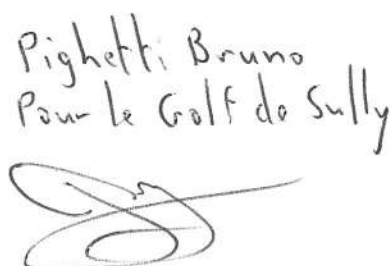 Pighetti Bruno
Pour le Golf de Sully